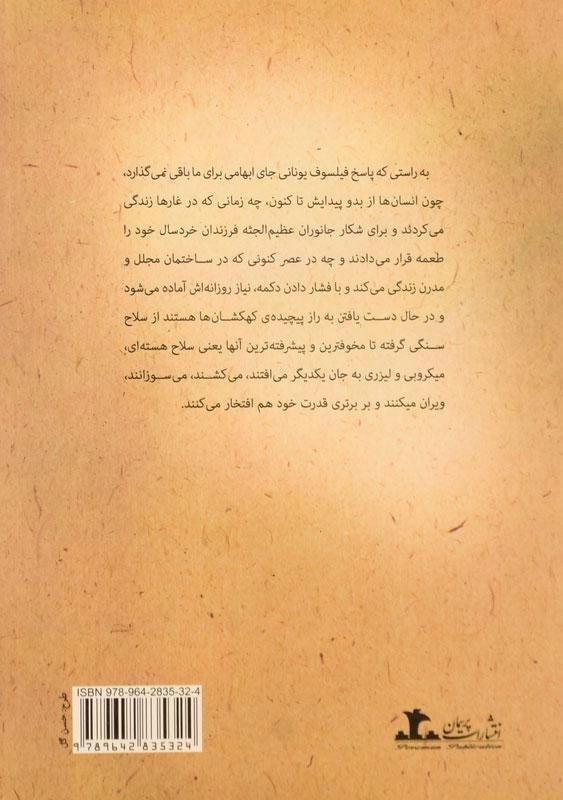 به راستی که پاسخ فیلسوف یونانی جای ابهامی برای ما باقی نمی‌گذارد،
چون انسان‌ها از بدو پیدایش تا کنون، چه زمانی که در غارها زندگی
می‌کردند و برای شکار جانوران عظیم‌الجثه فرزندان خردسال خود را
طعمه قرار می‌دادند و چه در عصر کنونی که در ساختمان مجلل و
مدرن زندگی می‌کند و با فشار دادن دکمه، نیاز روزانه‌اش آماده می‌شود
و در حال دست یافتن به راز پیچیده‌ی کهکشان‌ها هستند از سلاح
سنگی گرفته تا مخوفترین و پیشرفته‌ترین آنها یعنی سلاح هسته‌ای،
میکروبی و لیزری به جان یکدیگر می‌افتند، می‌کشند، می‌سوزانند،
ویران میکنند و بر برتری قدرت خود هم افتخار می‌کنند.
ISBN 978-964-2835-32-4
9 789642 835324
طرح: حسن گل
انتشارات پریمان
Publication